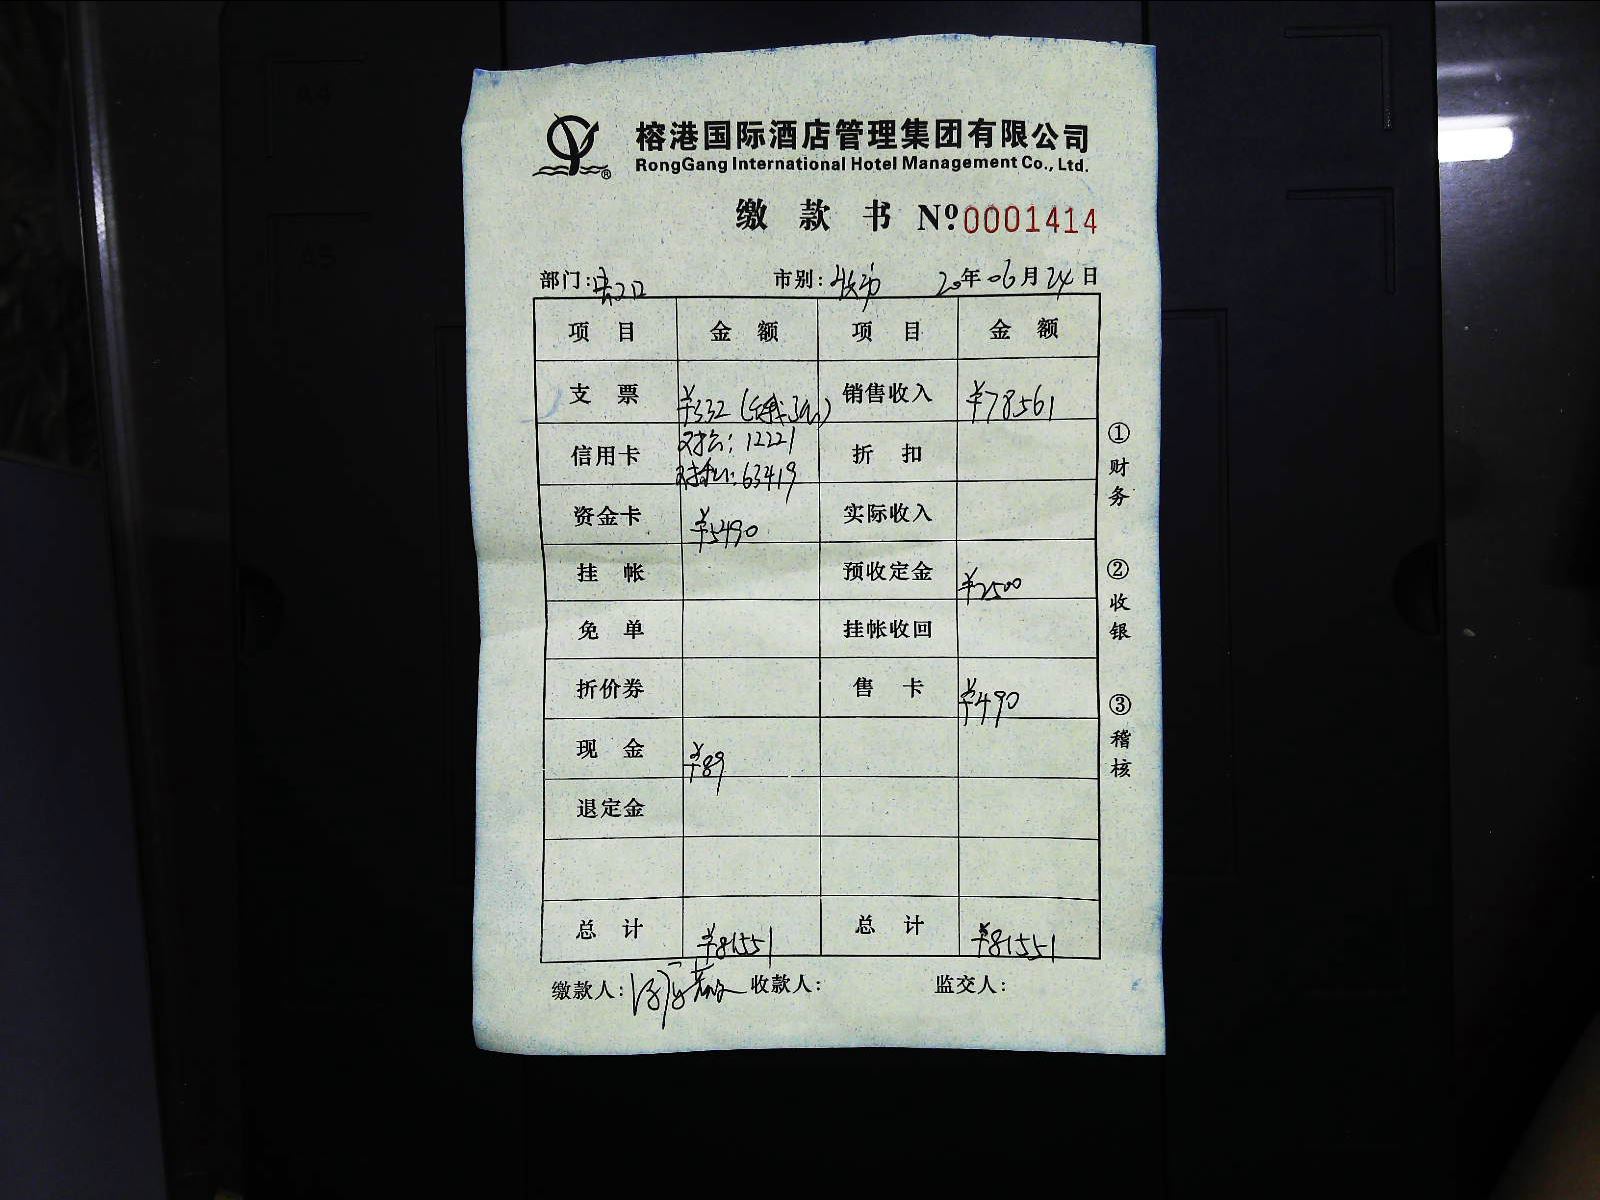 A4
A5
榕港国际酒店管理集团有限公司
RongGang International Hotel Management Co., Ltd.
缴款书 Nº 0001414
部门: 市别: 20年06月24日
项目 金额 项目 金额
支票 ¥332 销售收入 ¥78561
信用卡 对公: 12221 折扣
对私: 63419
资金卡 ¥5490 实际收入
挂帐 预收定金 ¥2500
免单 挂帐收回
折价券 售卡 ¥490
现金 ¥89
退定金
总计 ¥81551 总计 ¥81551
缴款人: 收款人: 监交人:
①财务
②收银
③稽核